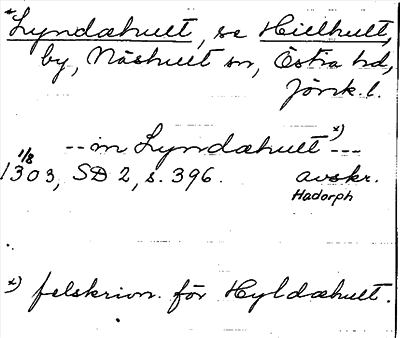 *Lyndæhult, se Hielhult,
by, Näshult sn, Östra hd,
Jönk. l.
-- in Lyndæhult x) ---
1/8
1303, SD 2, s. 396. avskr.
Hadorph
x) felskrivn. för Hyldæhult.